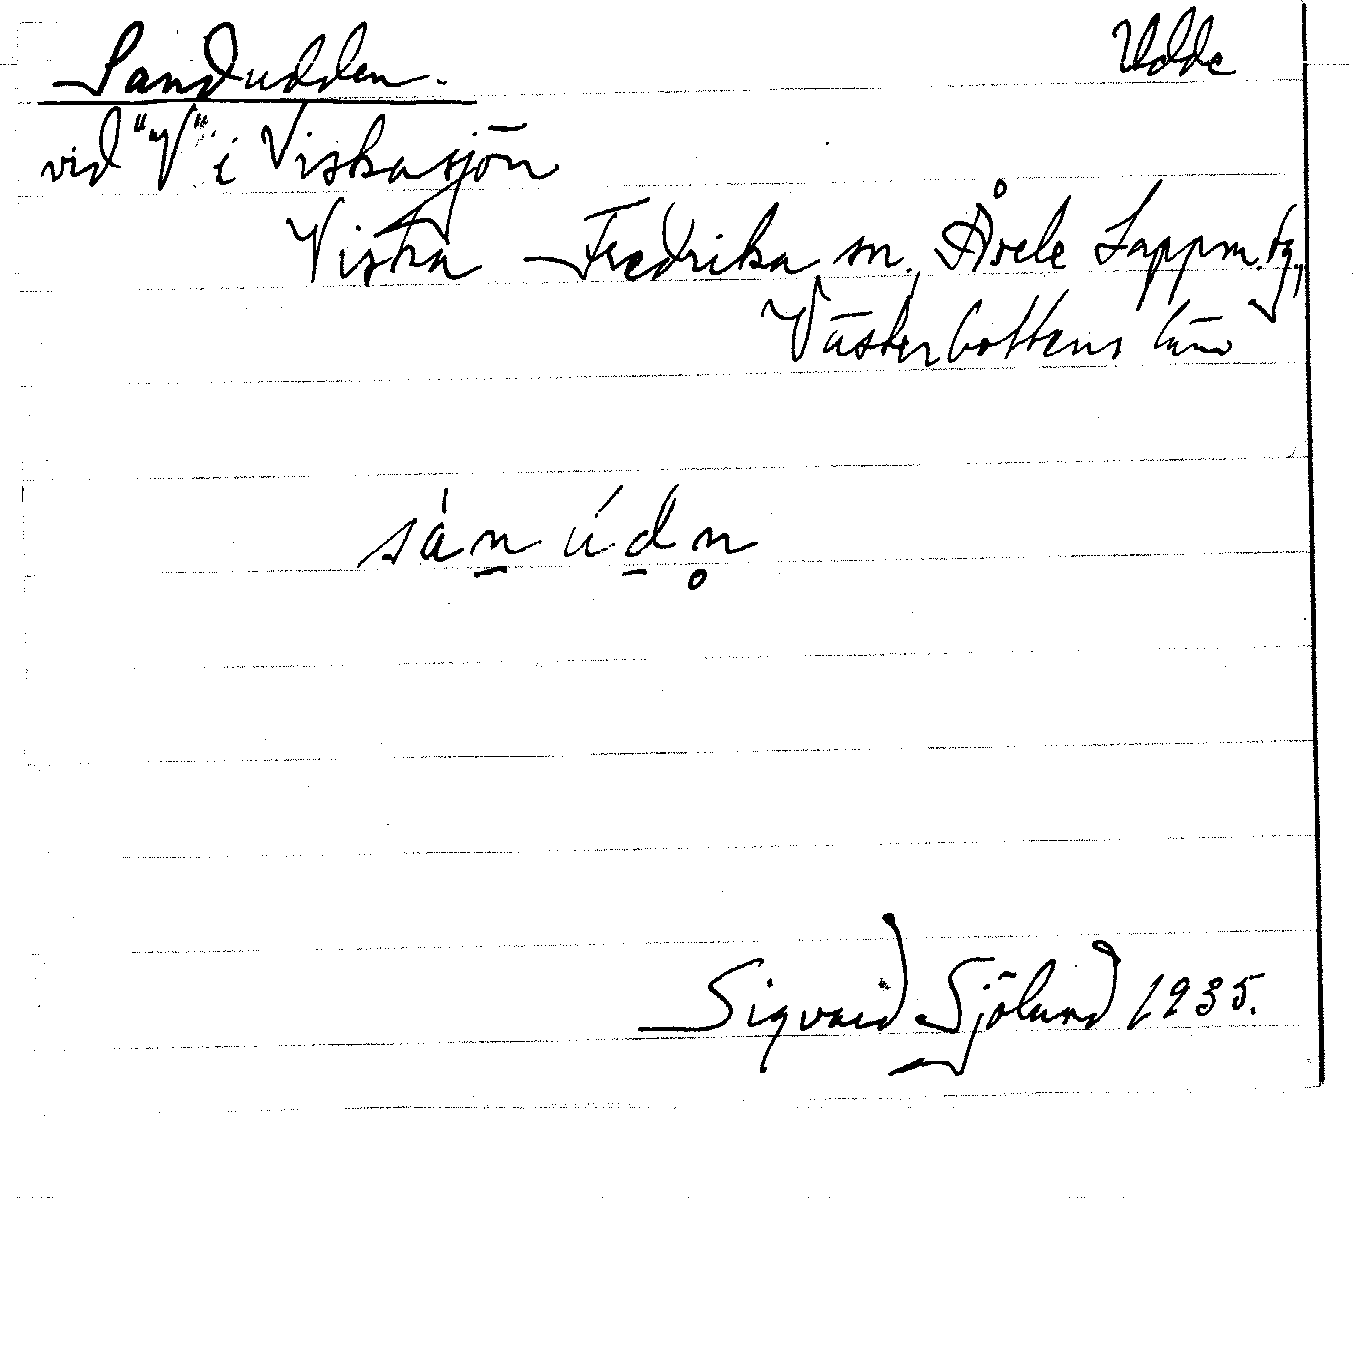 Sandudden. Udde
vid "V" i Viskasjön
Viska Fredrika sn, Åsele Lappm. tg,
Västerbottens län
sán̲ úd̲n̥
Sigvard Sjölund 1935.